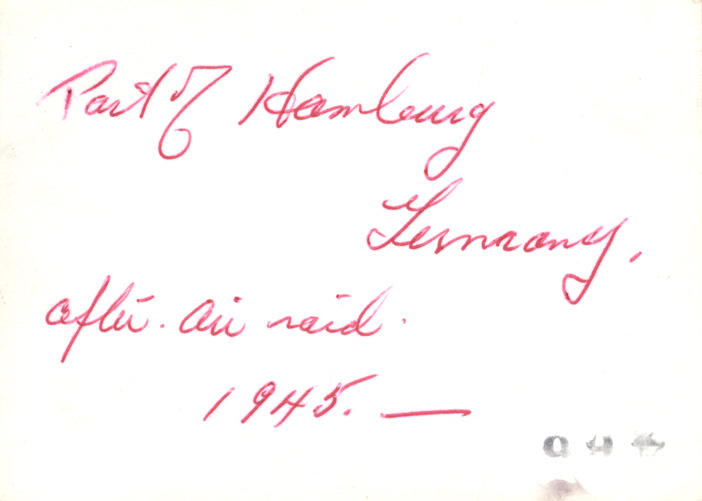 Part of Hamburg
Germany.
after. air raid.
1945. —